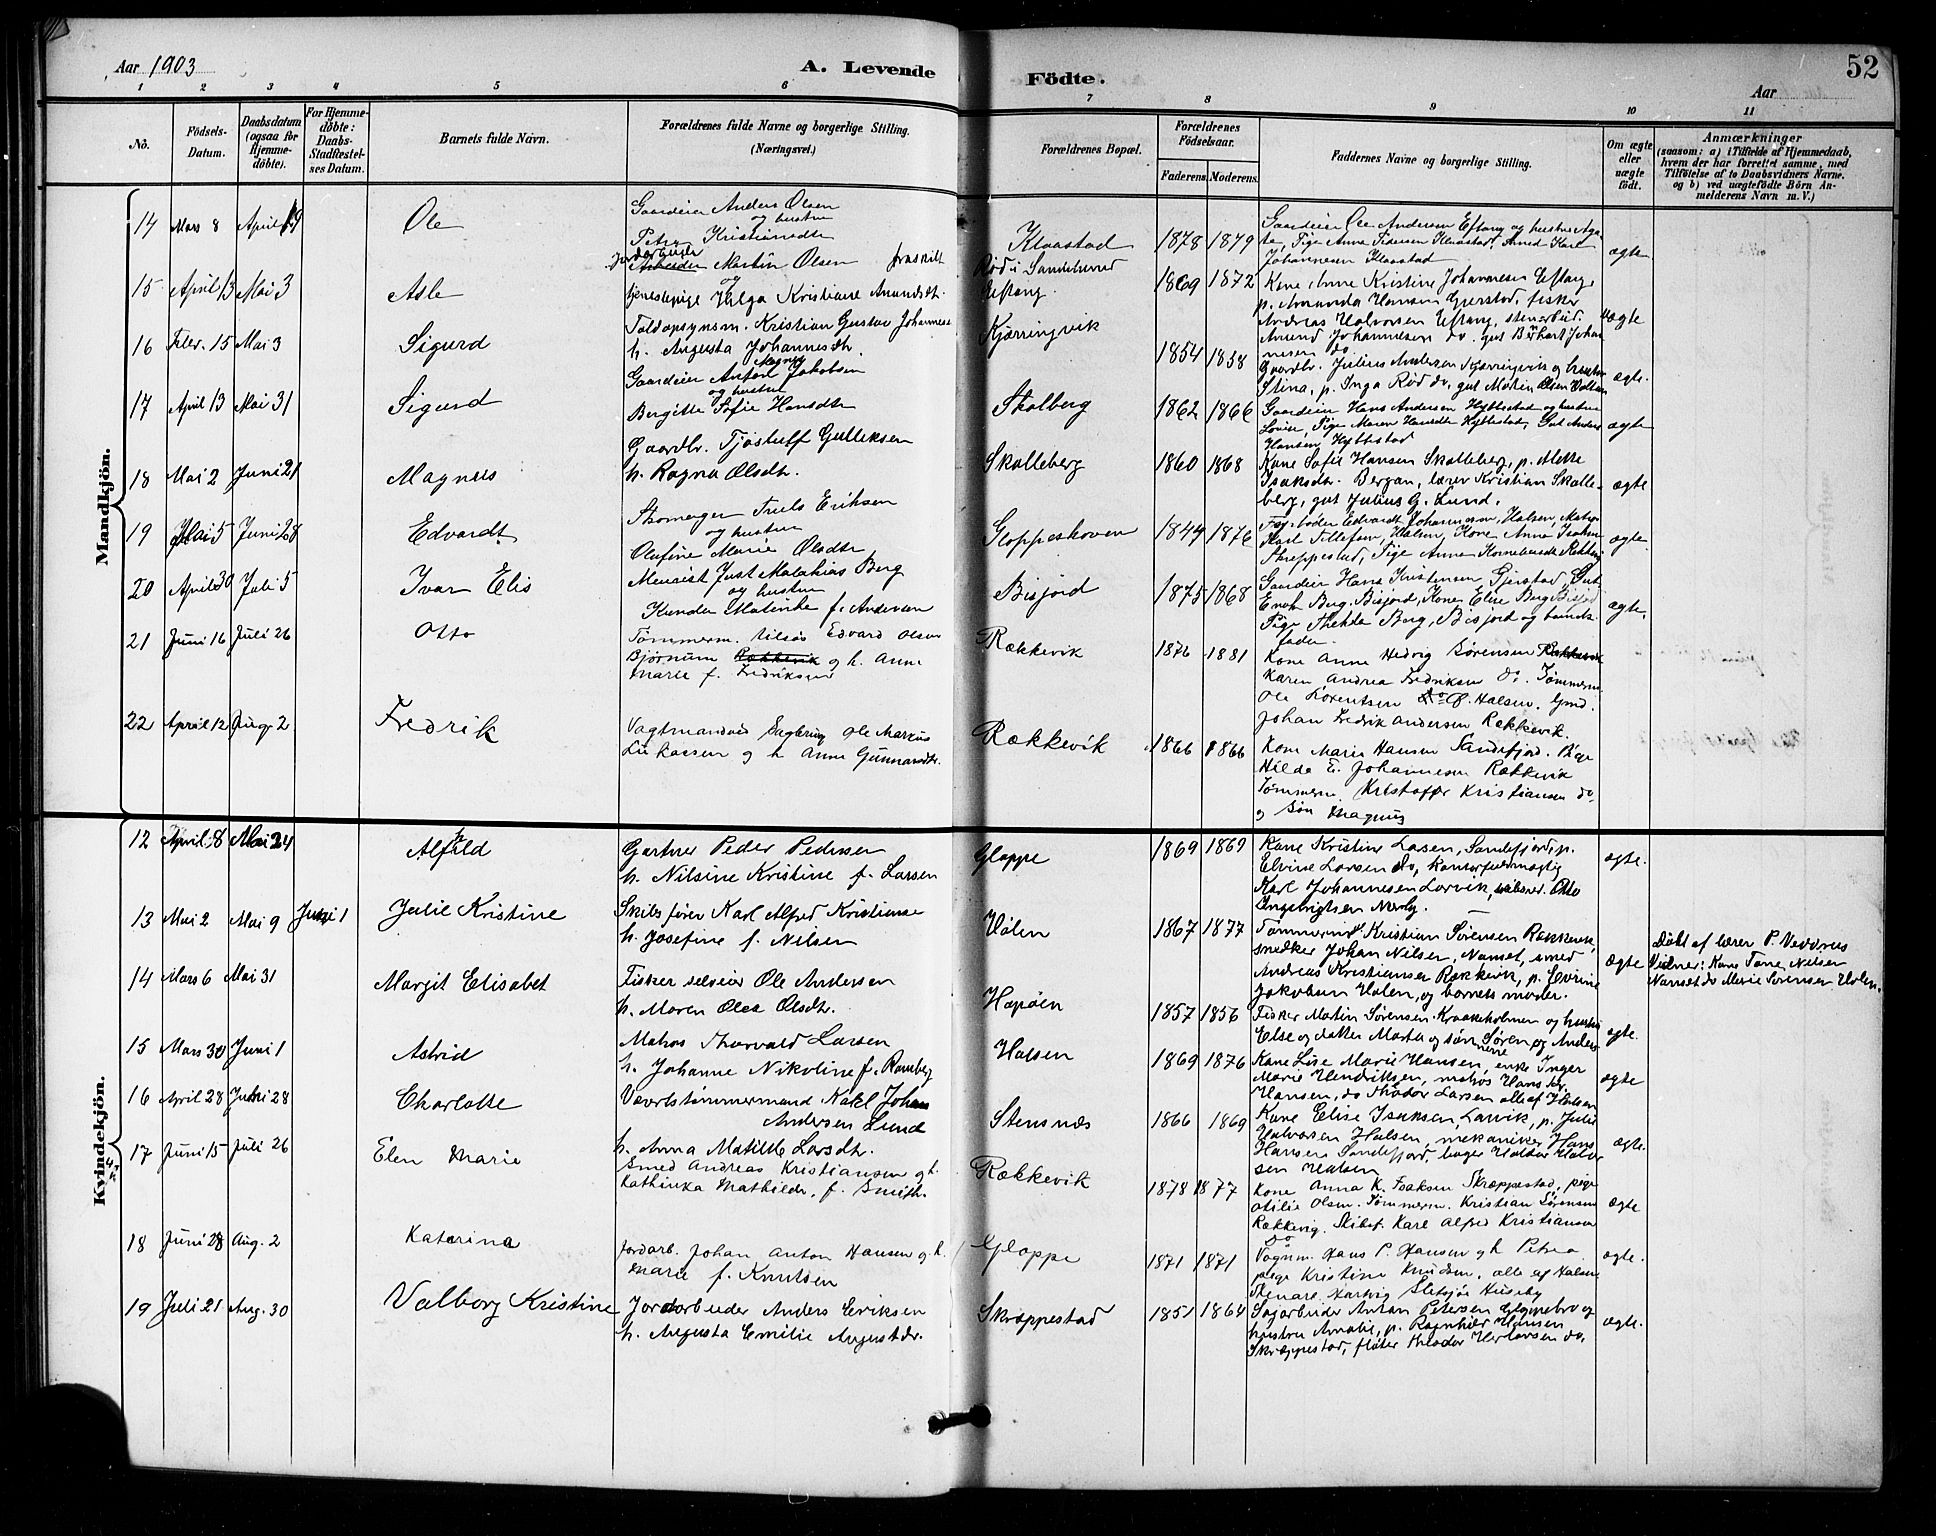 Aar 1903
A. Levende
Födte.
52
Aar
1 2 3 4 5 6 7 8 9 10 11
Nö.
Födsels-Datum.
Daabsdatum (ogsaa for Hjemme-döbte).
For Hjemme-döbte: Daabs-Stadfæstel-ses Datum.
Barnets fulde Navn.
Forældrenes fulde Navne og borgerlige Stilling. (Næringsvei.)
Forældrenes Bopæl.
Forældrenes Födselsaar.
Faderens. Moderens.
Faddernes Navne og borgerlige Stilling.
Om ægte eller uægte født.
Anmærkninger (saasom: a) i Tilfælde af Hjemmedaab, hvem der har forrettet samme, med Tilföielse af to Daabsvidners Navne, og b) ved uægtefödte Börn Anmelderens Navn m. V.)
Mandkjön.
14 Mars 8 April 19 Ole
Gaardeier Anders Olsen
og hustru
Petra Kristiansdtr
Klaastad 1878 1879
Gaardeier Ole Andersen Eftang og hustru
Johannesen Klaastad
ægte
15 April 13 Mai 3 Asle
Jordarbeider
Arbeider Martin Olsen fraskilt
tjenestepige Helga Kristiane Amundsdt.
Rød i Sandeherred
Eftang.
1869 1872
Kone Anne Kristine Johannesen Eftang,
p. Amanda Hansen Gjerstad, fisker
Andreas Halvorsen Eftang, stenarbeid.
Amund Johannesen do. gut Bernhart Johan
nesen do
uægte
16 Febr. 15 Mai 3 Sigurd
Toldopsynsm. Kristian Gustav Johannesen
h. Augusta Johannesdtr.
Kjærringvik
1854 1858
Gaardbr. Julius Andersen Kjærringvik og hustru
Stina, p. Inga Rød do, gut Martin Olsen
ægte.
17 April 13 Mai 31 Sigurd
Gaardeier Anton Magnus Jakobsen
og hustru
Bergitte Sofie Hansdtr
Skalberg 1862 1866
Gaardeier Hans Andersen Hybbestad og hustru
Lovise, Pige Maren Hansdtr Hybbestad, Gut Anders
Hansen Hybbestad
ægte
18 Mai 2 Juni 21 Magnus
Gaardbr. Tjøstuff Gulliksen
h. Ragna Olsdtr.
Skalleberg 1860 1868
Kone Sofie Hansen Skalleberg, p. Mette
Isaksdr. Bergan, lærer Kristian Skalle-
berg, gut Julius G. Lund.
ægte
19 Mai 5 Juni 28 Edvardt
Skomager Truls Eriksen
og hustru
Olufine Marie Olsdtr
Gloppeshoven 1847 1876
Edvardt Johannesen, Halsen, Matros
Karl Tollefsen, Halsen, Kone Anna Isaksen
Skreppestad, Pige Anna
ægte.
20 April 30 Juli 5 Ivar Elis
Murmest Just Malakias Berg
og hustru
Kunda Matinke f. Andersen
Bisjord 1875 1868
Gaardeier Hans Kristensen Gjerstad, Gut
Enok Berg, Bisjord, Kone Elise Berg Bisjord
Pige Thekda Berg, Bisjord og barnets
fader.
ægte.
21 Juni 16 Juli 26 Otto
Tømmerm. Nilsøs Edvard Olsen
Bjørnum Rækkevik og h. Anne
Marie f. Fredriksen
Rækkevik 1876 1881
Kone Anne Hedvig Sørensen Rækkevik
Karen Andrea Fredriksen do. Tømmerm.
Ole Lorentsen do Halsen,
Johan Fredrik Andersen Rækkevik.
22 April 12 Aug. 2 Fredrik
Vagtmand ved Sagbrug Ole Markus
Lukassen og h Anne Gunnarsdtr.
Rækkevik 1866 1866
Kone Marie Hansen Sandefjord. Pige
Hilda E. Johannesen Rækkevik
Tømmerm. Kristoffer Kristiansen do,
og Søn Magnus
Kvindekjön.
12 April 8 Mai 24 Alfhild
Gartner Peder Pedersen
h. Nilsine Kristine f. Larsen
Gloppe 1869 1869
Kone Kristine Lasen, Sandefjord, p.
Elvine Larsen do, kontorfuldmægtig
Karl Johannesen Larvik, Otto
Ingebrigtsen
ægte.
13 Mai 2 Mai 9 Juni 1 Julie Kristine
Skibsfører Karl Alfred Kristianse
h. Josefine f. Nilsen
Holen 1867 1877
Tømmermd Kristian Sørensen Rækkevik,
snedker Johan Nilsen, Nanset, smed
Andreas Kristiansen Rækkevik, p. Hovine
Jakobsen Holen, og barnets moder.
ægte
Døbt af lærer P. Veddrus
Vidner: Kone Tone Nilsen
Nanset do Marie Sørensen Holen.
14 Mars 6 Mai 31 Margit Elisabet
Fisker selveier Ole Andersen
h. Maren Olea Olsdtr.
Hapøen 1857 1856
Fisker Matin Sørensen Kraakeholmen og hustru
Else og datter Marta og sønnerne Søren og Anders
ægte.
15 Mars 30 Juni 1 Astrid
Matros Thorvald Larsen
h. Johanne Nikoline f. Ramberg
Halsen 1869 1876
Kone Lise Marie Hansen, enke Inger
Marie Hendriksen, matros Hans Kr.
Hansen, do Thodor Larsen alle af Halsen
ægte
16 April 28 Juni 28 Charlotte
Værftstømmermand Karl Johan
Andersen Lund
h. Anna Matilde Larsdtr.
Stensnæs 1866 1869
Kone Elise Isaksen, Larvik, p. Julie
Halvorsen Halsen, mekaniker Hans
Hansen Sandefjord, bager Haldor Halvor
sen Halsen
ægte.
17 Juni 15 Juli 26 Elen Marie
Smed Andreas Kristiansen og h.
Kathinka Mathilde, f. Smith.
Rækkevik 1878 1877
Kone Anna K. Isaksen Skræppestad, pige
Otilie Olsen. Tømmerm. Kristian Sørensen
Rækkevig. Skibsf. Karl Alfred Kristiansen
do
ægte
18 Juni 28 Aug. 2 Katarina
Jordarb. Johan Anton Hansen og h.
Marie f. Knutsen
Gloppe 1871 1871
Vognm. Hans P. Hansen og h Petrea
pige Kristine Knudsen, alle af Halsen
Stenarb. Hartvig Sletsjø Huseby
ægte.
19 Juli 21 Aug. 30 Valborg Kristine
Jordarbeider Anders Eriksen
h. Augusta Emilie Augustdr.
Skræppestad 1851 1864
Sagarbeider Anton Petersen Gjønebro og
hustru Amalie, p. Ragnhild Hansen
Skræppestad, fløter Theodor Herlovsen do,
ægte.